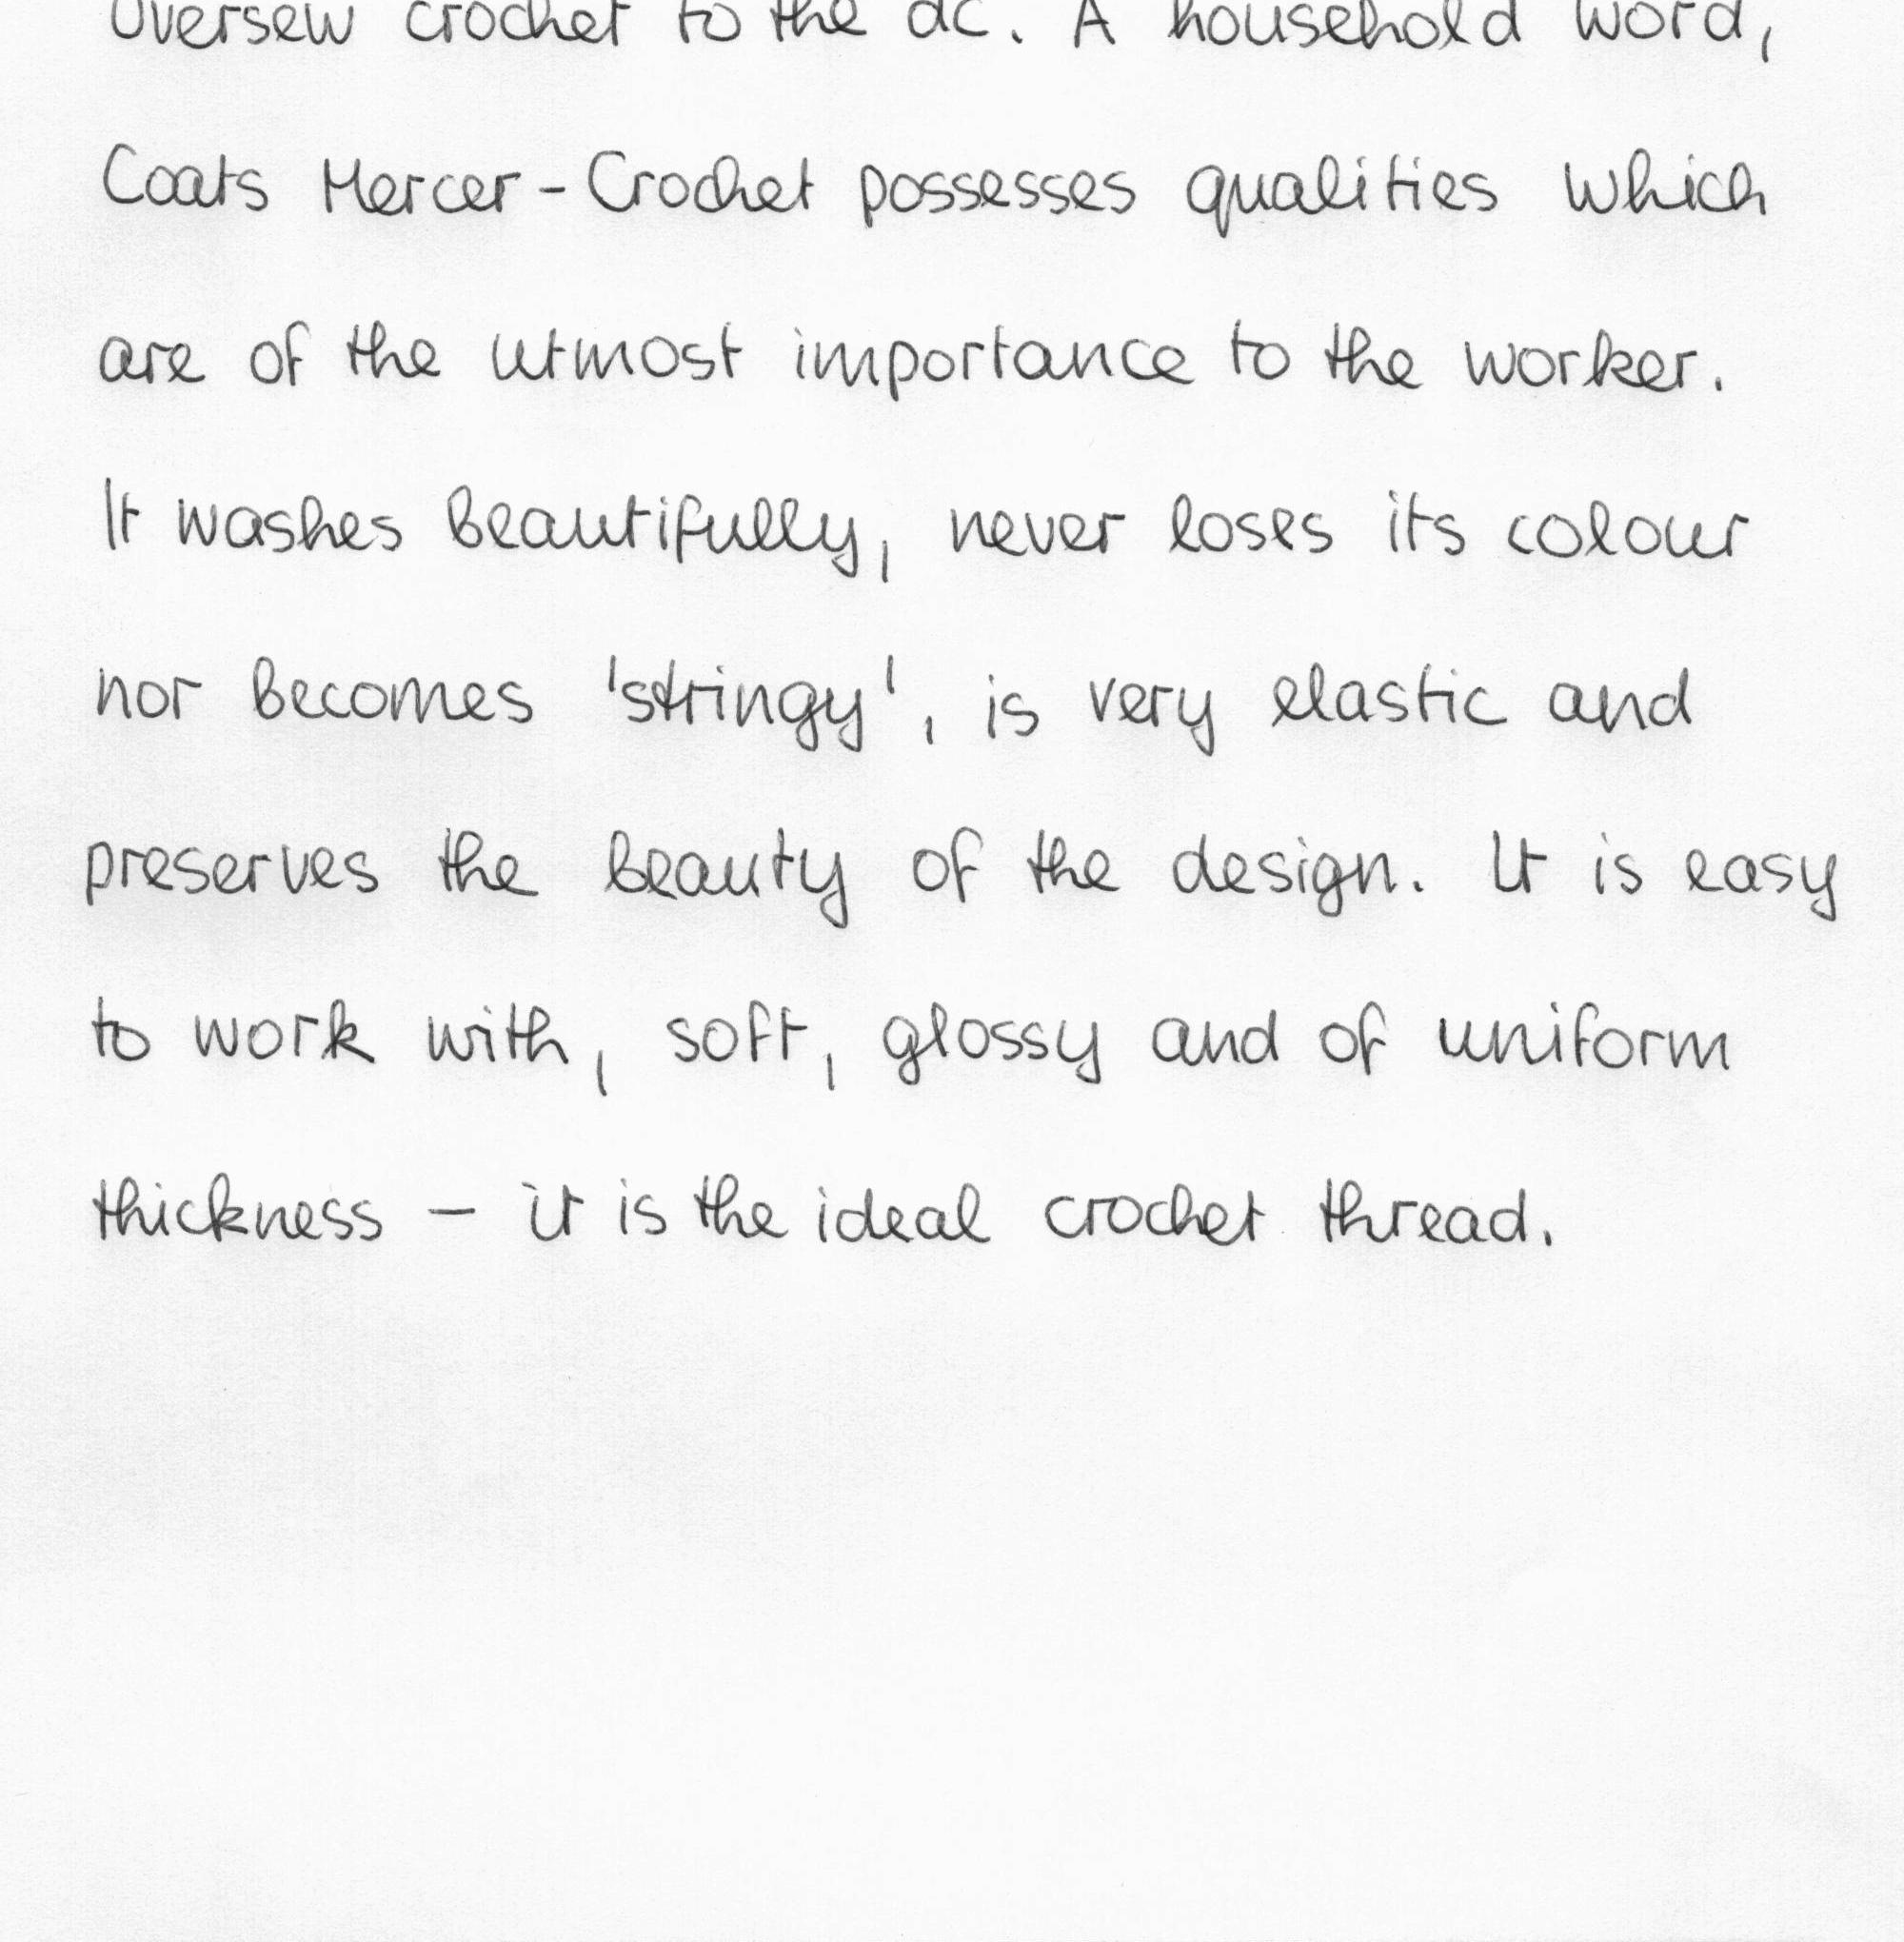 Oversew crochet to the dc. A household word,
Coats Mercer-Crochet possesses qualities which
are of the utmost importance to the worker.
It washes beautifully, never loses its colour
nor becomes 'stringy', is very elastic and
preserves the beauty of the design. It is easy
to work with, soft, glossy and of uniform
thickness – it is the ideal crochet thread.